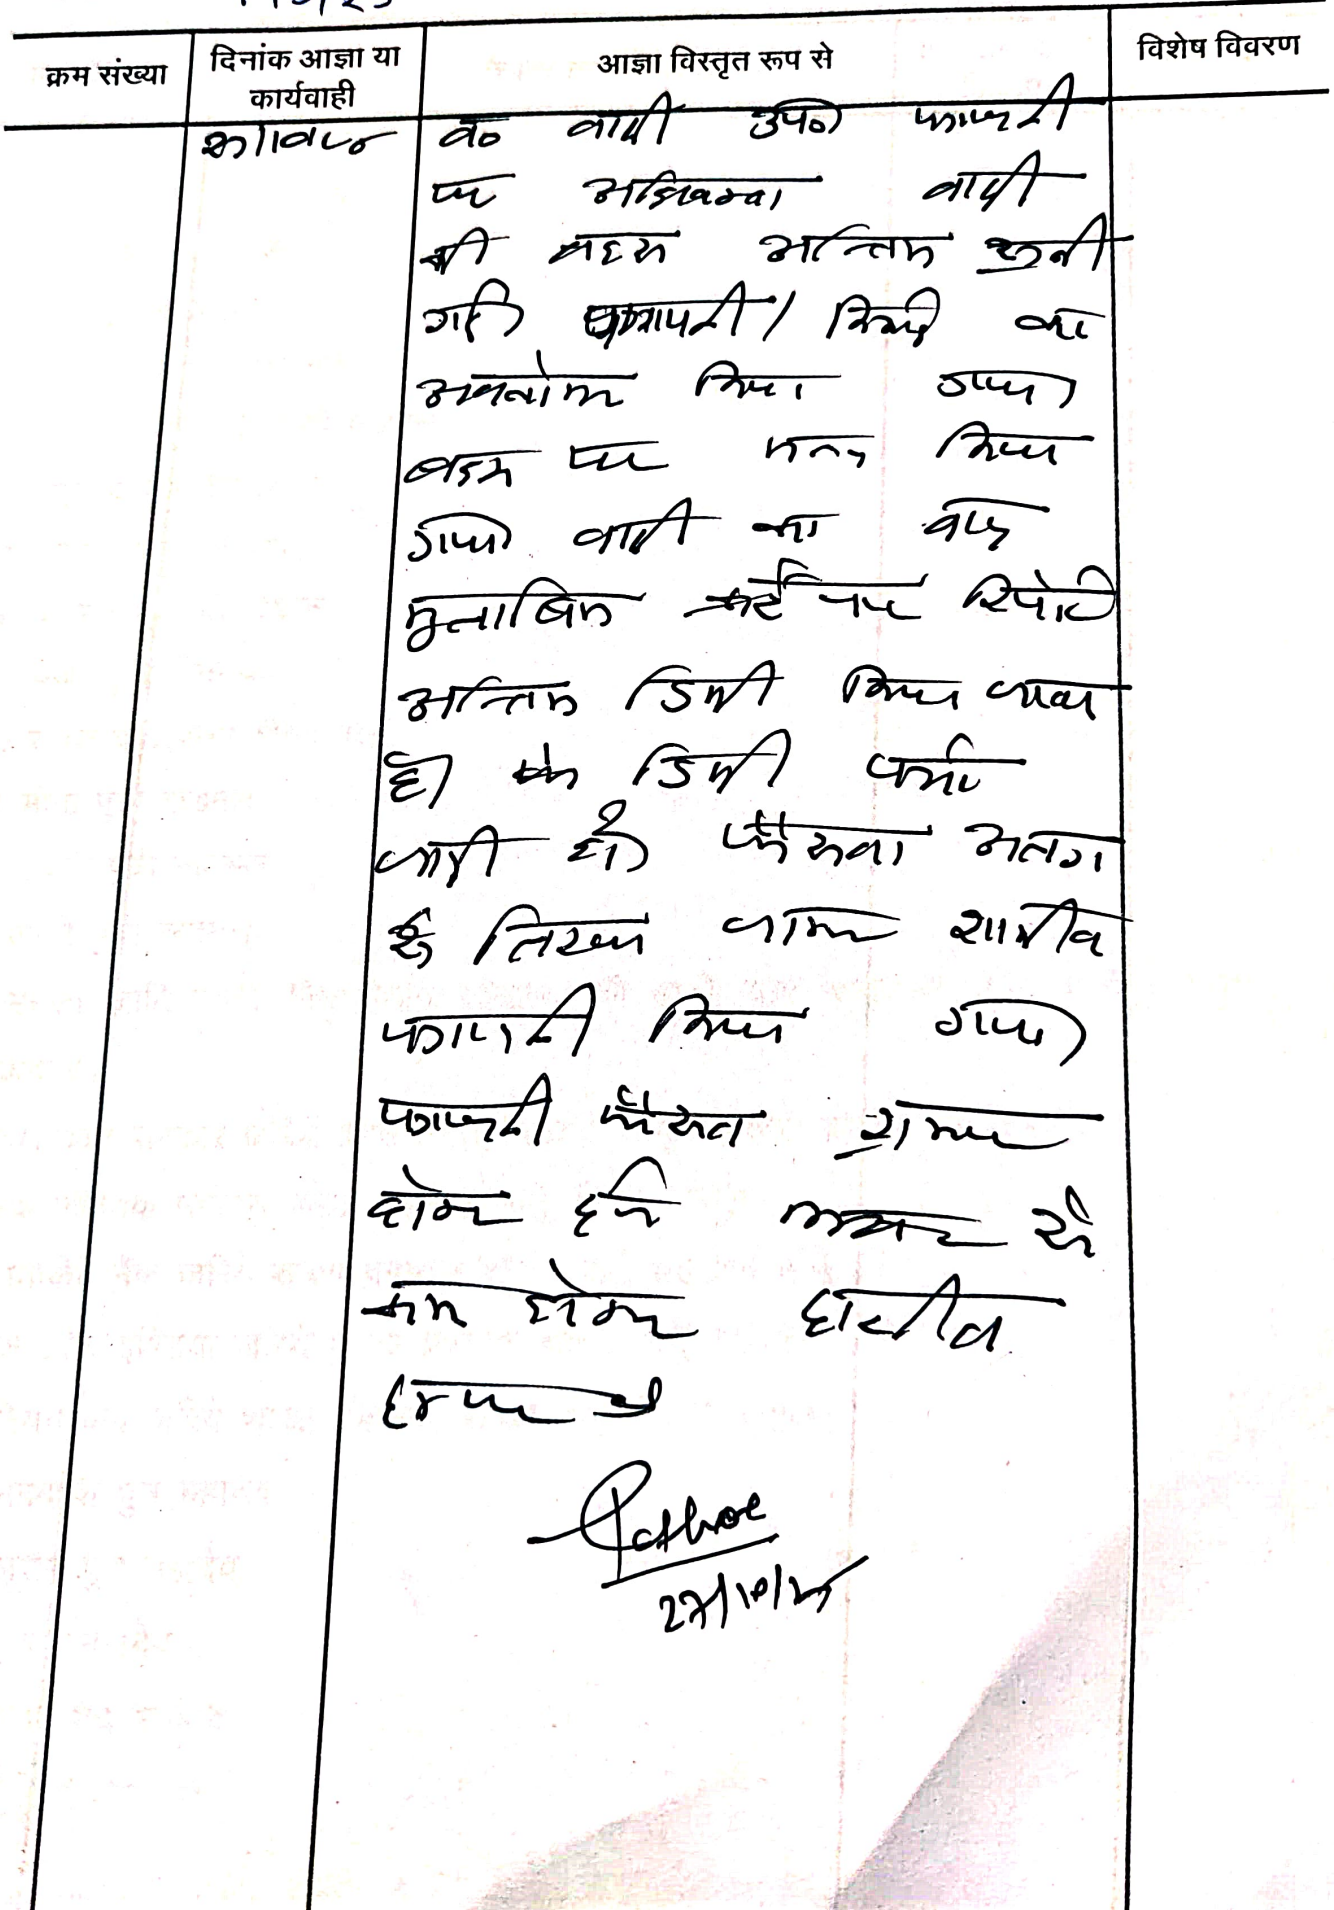 क्रम संख्या
दिनांक आज्ञा या
कार्यवाही
आज्ञा विस्तृत रूप से
विशेष विवरण
व० वादी उप० पत्रावली
पर अधिवक्ता वादी
की बहस अन्तिम सुनी
गई। पत्रावली / का
अवलोकन किया गया।
बहस पर मनन किया
गया। वादी का वाद
मुताबिक रिपोर्ट
अन्तिम डिक्री किया जाता
है। डिक्री पर्चा
जारी हो। फैसला अलग
से लिखा जाकर शामील
पत्रावली किया गया।
पत्रावली फैसल शुमार
होकर नम्बर से
कम होकर दाखील
दफ्तर हो
27/10/25